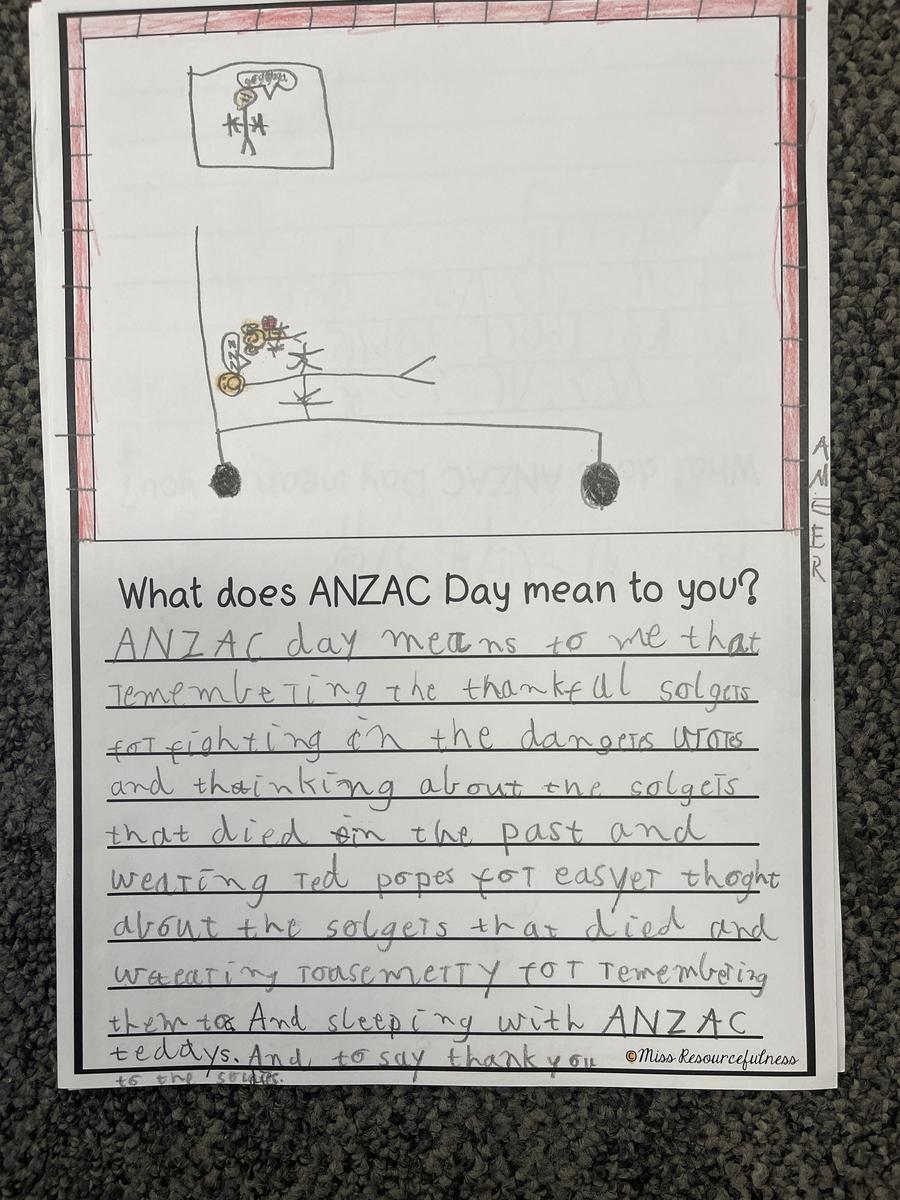 zzz
ANEER
What does ANZAC Day mean to you?
ANZAC day means to me that
remembering the thankful solgers
for fighting in the dangers wores
and thainking about the solgers
that died in the past and
wearing red popes for easyer thoght
about the solgers that died and
waearing rousemerry for remembering
them to And sleeping with ANZAC
teddys. And to say thank you
©Miss Resourcefulness
to the